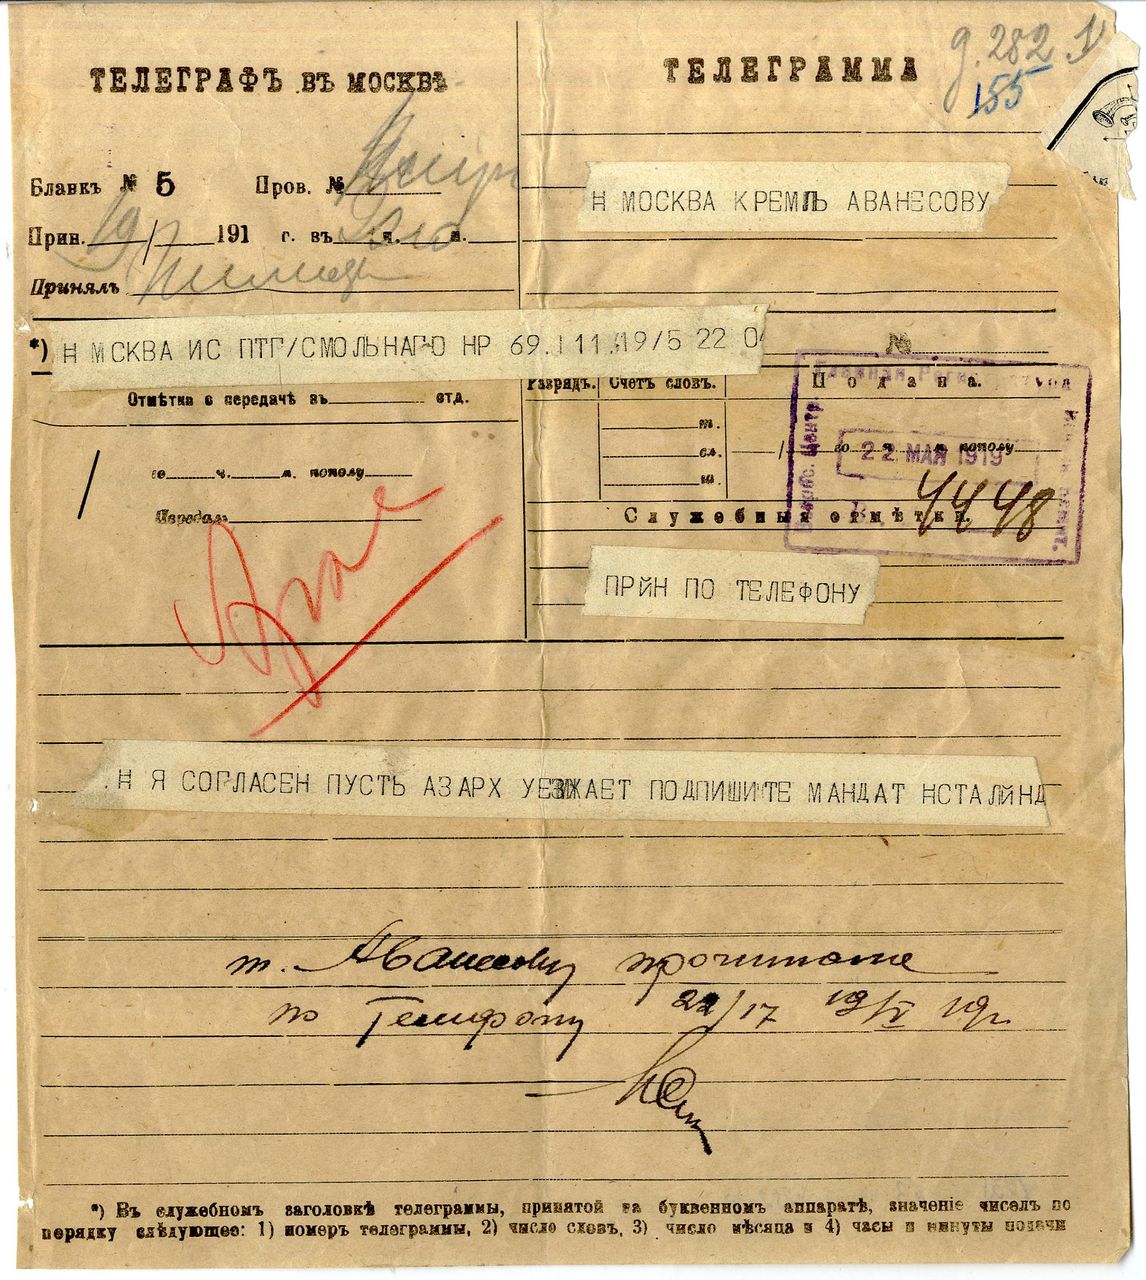 ТЕЛЕГРАФЪ ВЪ МОСКВѢ
ТЕЛЕГРАММА
д. 282
155
Бланкъ № 5 Пров. №
Прин. 19/ 191 г. въ ч. м.
Принялъ
Н МОСКВА КРЕМЛЬ АВАНЕСОВУ
*) Н МСКВА ИС ПТГ/СМОЛЬНАГЮ НР 69. 111 .19/5 22 0
№
Отмѣтка о передачѣ въ отд.
Разрядъ. Счетъ словъ. Подана.
т.
го ч. м. пополу
сл.
/ го м. пополу
ш.
22 МАЯ 1919
4448
Передалъ
Служебныя отмѣтки.
ПРЙН ПО ТЕЛЕФОНУ
.Н Я СОГЛАСЕН ПУСТЬ АЗАРХ УЕЗЖАЕТ ПОДПИШИТЕ МАНДАТ НСТАЛЙНД
т. Аванесову прочитано
по Телефону 22/17 19/V 19г
*) Въ служебномъ заголовкѣ телеграммы, принятой на буквенномъ аппаратѣ, значеніе чиселъ по
порядку слѣдующее: 1) номеръ телеграммы, 2) число словъ, 3) число мѣсяца и 4) часы и минуты подачи